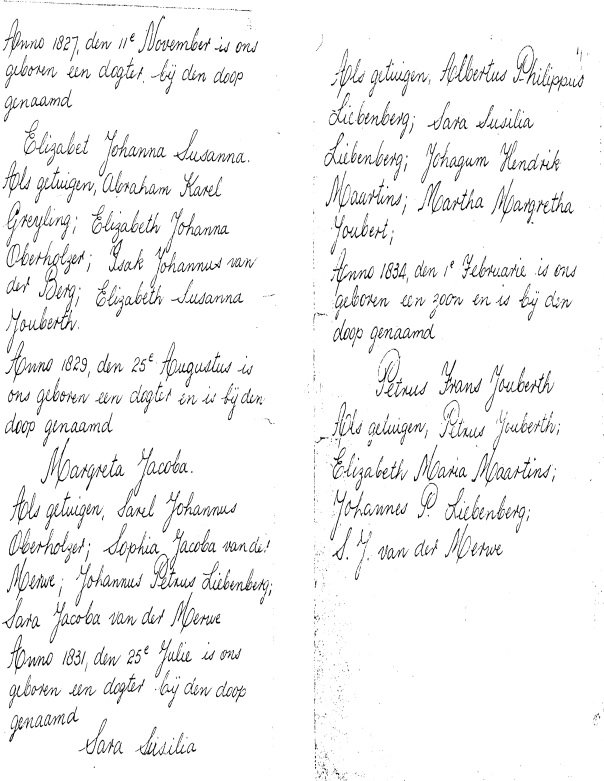 Anno 1827, den 11e November is ons
geboren een dogter bij den doop
genaamd
Elizabet Johanna Susanna.
Als getuigen, Abraham Karel
Greyling; Elizabeth Johanna
Oberholzer; Isak Johannus van
der Berg; Elizabeth Susanna
Jouberth.
Anno 1829, den 25e Augustus is
ons geboren een dogter en is bij den
doop genaamd
Margreta Jacoba.
Als getuigen, Sarel Johannus
Oberholzer; Sophia Jacoba van der
Merwe; Johannus Petrus Liebenberg;
Sara Jacoba van der Merwe
Anno 1831, den 25e Julie is ons
geboren een dogter bij den doop
genaamd
Sara Susilia
Als getuigen, Albertus Philippus
Liebenberg; Sara Susilia
Liebenberg; Johagum Hendrik
Maartins; Martha Margretha
Joubert;
Anno 1834, den 1e Februarie is ons
geboren een zoon en is bij den
doop genaamd
Petrus Frans Jouberth
Als getuigen, Petrus Jouberth;
Elizabeth Maria Maartins;
Johannes P. Liebenberg;
S. J. van der Merwe